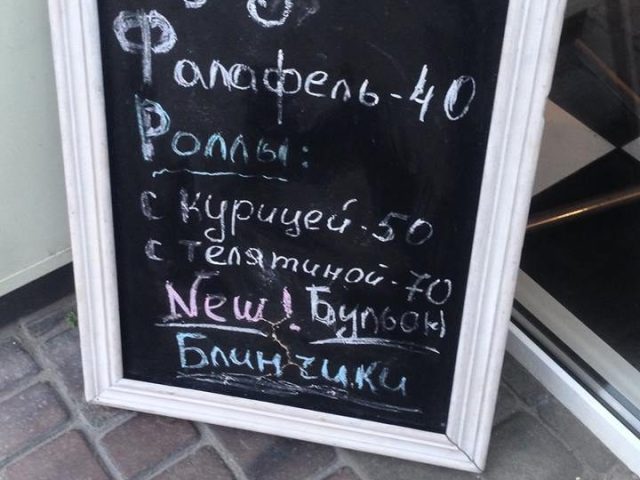 Фалафель-40
Роллы:
с курицей-50
с телятиной-70
New! Бульон
Блинчики